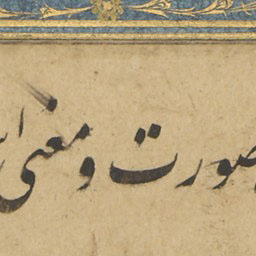 صورت و معنی